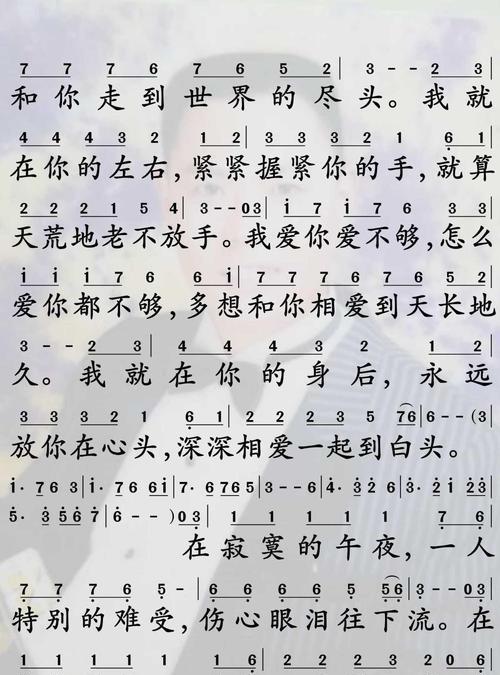 7 7 7 6 7 6 5 2| 3 - - 2 3|
和你走到世界的尽头。我就
4 4 4 3 2 1 2| 3 3 3 2 1 6 1|
在你的左右,紧紧握紧你的手,就算
2 2 2 1 5 4| 3--03| i 7 i 7 6 3 3|
天荒地老不放手。我爱你爱不够,怎么
i i i 7 6 6 i| 7 7 7 6 7 6 5 2|
爱你都不够,多想和你相爱到天长地
3 - - 2 3| 4 4 4 3 2 1 2|
久。我就在你的身后,永远
3 3 3 2 1 6 1| 2 2 2 3 5 76|6--(3|
放你在心头,深深相爱一起到白头。
i· 7 6 3|i· 7 6 6 i|7· 6 7 6 5|3--6|4· 3 2 6|3· 2 i 2 3|
5· 3 5 6 7|6--)03| 1 1 1 1 7 6|
在寂寞的午夜,一人
7 7 7 6 5 -| 6 6 6 6 5 56|3--03|
特别的难受,伤心眼泪往下流。在
1 1 1 1 1 6| 2 2 2 2 3 5|